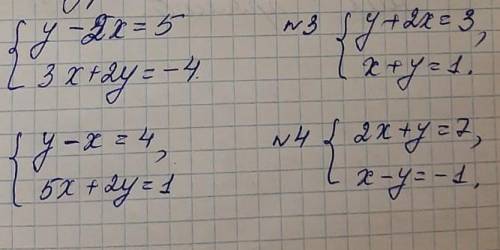 { y - 2x = 5
3x + 2y = -4.
№3 { y + 2x = 3,
x + y = 1.
{ y - x = 4,
5x + 2y = 1
№4 { 2x + y = 7,
x - y = -1.